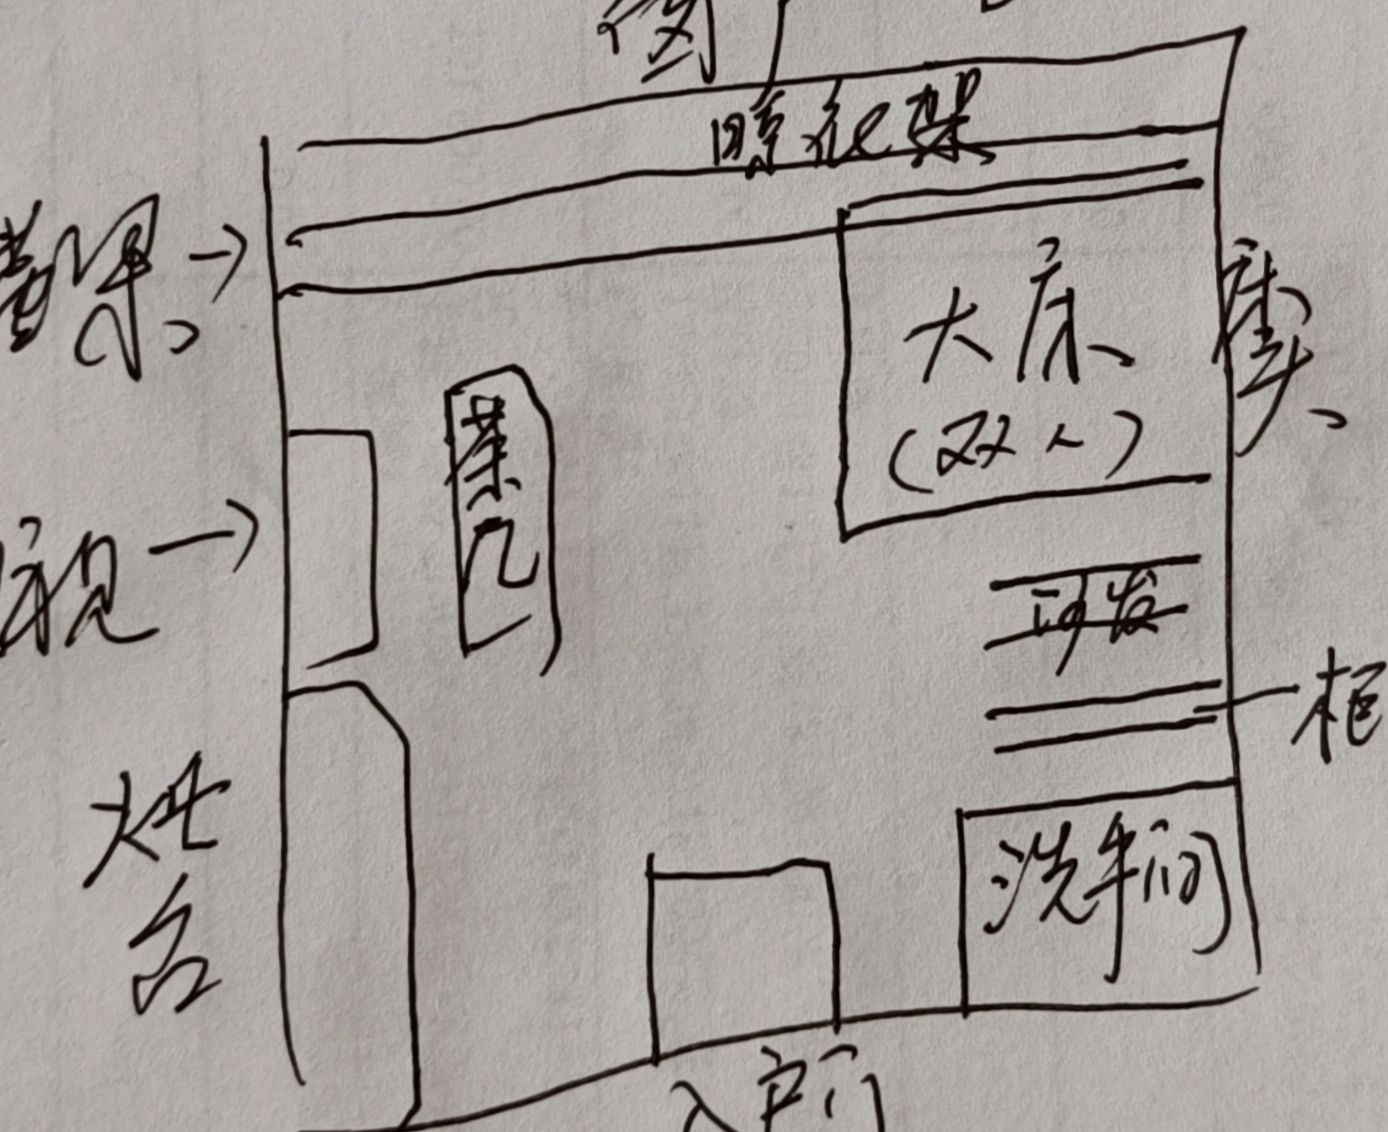 窗户
晾衣架
窗帘
大床
(双人)
床头
茶几
电视
沙发
柜
灶台
洗手间
入户门